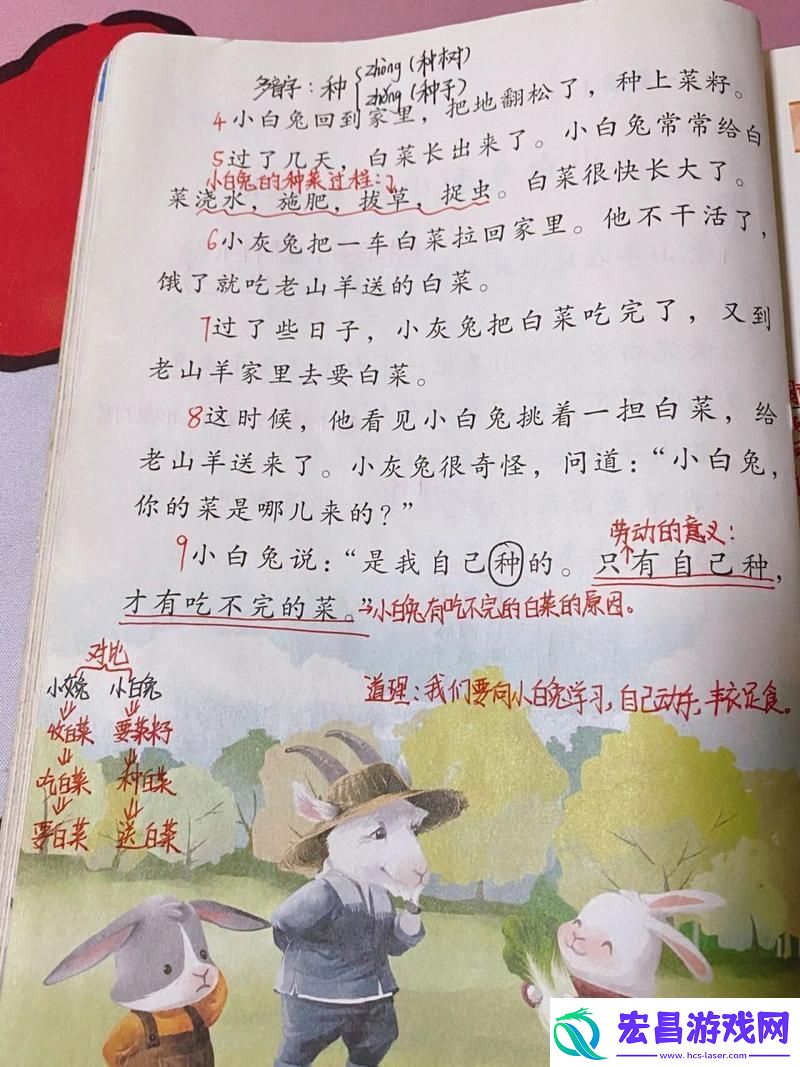 多音字：种 zhòng（种树）
zhǒng（种子）
4小白兔回到家里，把地翻松了，种上菜籽。
5过了几天，白菜长出来了。小白兔常常给白
小白兔的种菜过程：
菜浇水，施肥，拔草，捉虫。白菜很快长大了。
6小灰兔把一车白菜拉回家里。他不干活了，
饿了就吃老山羊送的白菜。
7过了些日子，小灰兔把白菜吃完了，又到
老山羊家里去要白菜。
8这时候，他看见小白兔挑着一担白菜，给
老山羊送来了。小灰兔很奇怪，问道：“小白兔，
你的菜是哪儿来的？”
劳动的意义：
9小白兔说：“是我自己种的。只有自己种，
才有吃不完的菜。”→小白兔有吃不完的白菜的原因。
道理：我们要向小白兔学习，自己动手，丰衣足食。
对比
小灰兔 小白兔
收白菜 要菜籽
吃白菜 种白菜
要白菜 送白菜
宏昌游戏网
www.hcs-laser.com